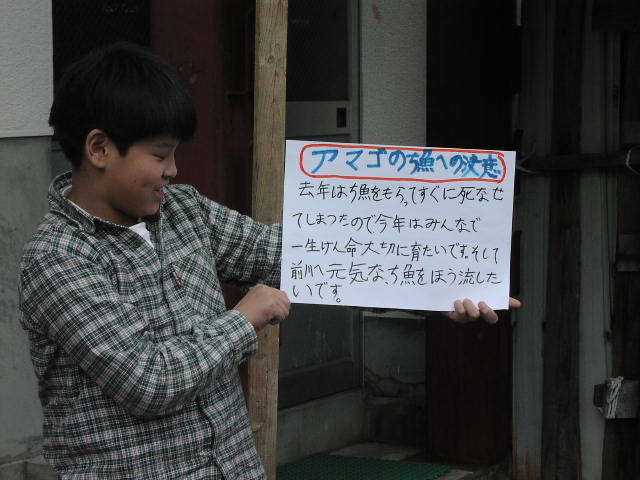 アマゴのち魚への決意
去年はち魚をもらってすぐに死なせ
てしまったので今年はみんなで
一生けん命大切に育たいです。そして
前川へ元気な、ち魚をほう流した
いです。